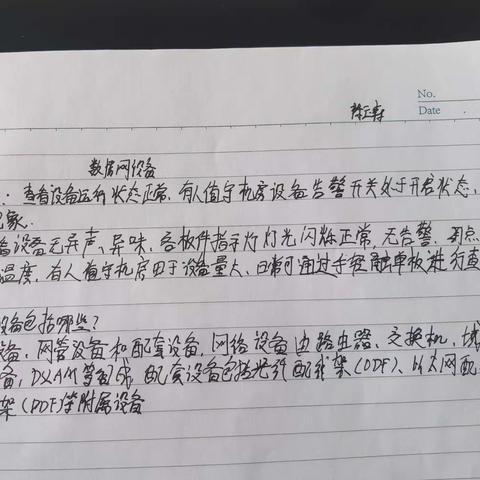 No.
Date
数据网设备
：查看设备运行状态正常，有人值守机房设备告警开关处于开启状态，
现象.
设备无异声、异味、各板件指示灯灯光闪烁正常，无告警.
温度，有人值守机房由于设备量大，日常可通过手轻触单板进行查
设备包括哪些？
设备，网管设备和配套设备，网络设备由路由器、交换机，城
备，DXAM等组成 配套设备包括光纤配线架（ODF）、以太网配
架（DDF)等附属设备